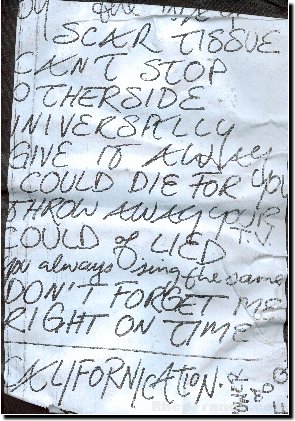 SCAR TISSUE
CAN'T STOP
OTHERSIDE
UNIVERSALLY
GIVE IT AWAY
COULD DIE FOR YOU
THROW AWAY YOUR
T.V.
COULD of LIED
you always sing the same
DON'T FORGET ME
RIGHT ON TIME
CALIFORNICATION.
POWER
of
EQ